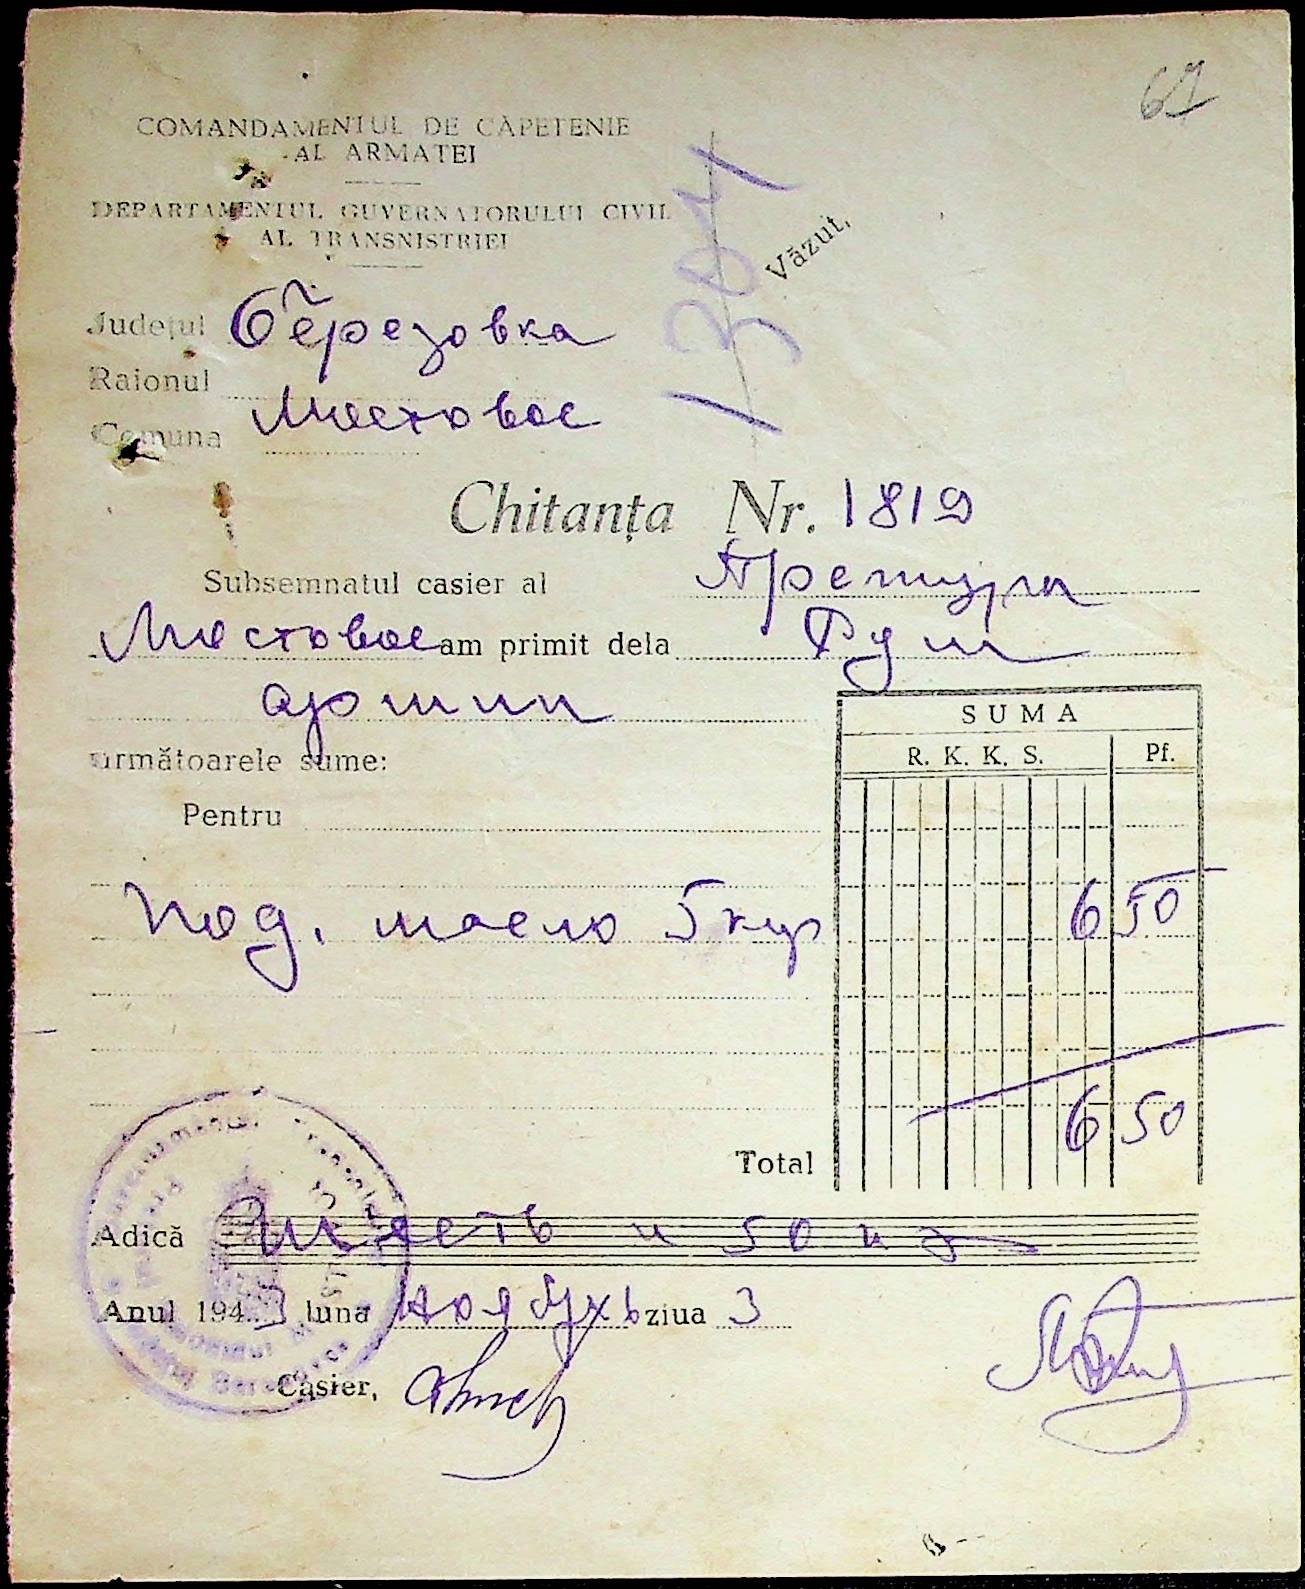 67
COMANDAMENTUL DE CĂPETENIE
AL ARMATEI
DEPARTAMENTUL GUVERNATORULUI CIVIL
AL TRANSNISTRIEI
1304
Văzut,
Județul Березовка
Raionul
Мостовое
Comuna
Chitanța Nr. 1819
Subsemnatul casier al Претуры
Мостовое am primit dela Рум
армии
următoarele sume:
SUMA
R. K. K. S. Pf.
Pentru
Под. масло 5 кгр 6 50
6 50
Total
Adică Шесть и 50 пф
Anul 1943 luna Ноябрь ziua 3
Casier,